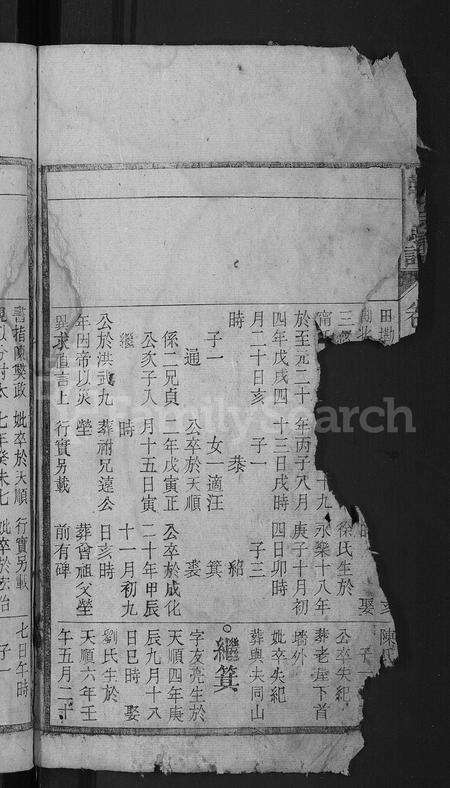 田勘
三 徐氏生於 公卒失紀
十九 永樂十八年 葬老屋下首
於至元二十 年丙子八月 庚子十月初 墻外
四年戊戌四 十三日戌時 四日卯時 妣卒失紀
月二十日亥 子一 子三 葬與夫同山
時 恭 紹
子一 女一適汪 箕 繼箕
通 公卒於天順 裘 字友亮生於
係二兄貞 二年戊寅正 公卒於成化 天順四年庚
公次子入 月十五日寅 二十年甲辰 辰九月十八
繼 時 十一月初九 日巳時 娶
公於洪武九 葬祔兄遠公 日亥時 劉氏生於
年因帝以災 塋 葬曾祖父塋 天順六年壬
異求直言上 行實另載 前有碑 午五月二十
書指陳時政 妣卒於天順 行實另載 七日午時
七年癸未七 妣卒於弘治 子一
FamilySearch